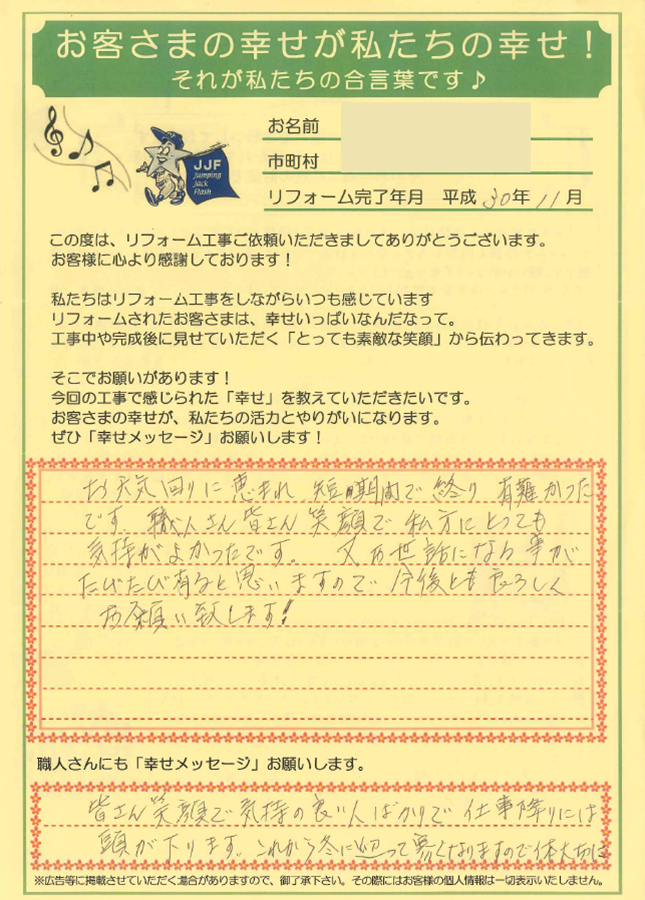 お客さまの幸せが私たちの幸せ！
それが私たちの合言葉です♪
お名前
JJF
Jumping
Jack
Flash
市町村
リフォーム完了年月　平成 30年 11月
この度は、リフォーム工事ご依頼いただきましてありがとうございます。
お客様に心より感謝しております！
私たちはリフォーム工事をしながらいつも感じています
リフォームされたお客さまは、幸せいっぱいなんだなって。
工事中や完成後に見せていただく「とっても素敵な笑顔」から伝わってきます。
そこでお願いがあります！
今回の工事で感じられた「幸せ」を教えていただきたいです。
お客さまの幸せが、私たちの活力とやりがいになります。
ぜひ「幸せメッセージ」お願いします！
お天気回りに恵まれ 短期間で終り 有難かった
です。職人さん皆さん笑顔で私方にとっても
気持がよかったです。 又お世話になる事が
たびたび有ると思いますので今後とも良ろしく
お願い致します!
職人さんにも「幸せメッセージ」お願いします。
皆さん笑顔で気持の良い人ばかりで 仕事降りには
頭が下ります。これから冬に って くなりますので体大切に
※広告等に掲載させていただく場合がありますので、御了承下さい。その際にはお客様の個人情報は一切表示いたしません。